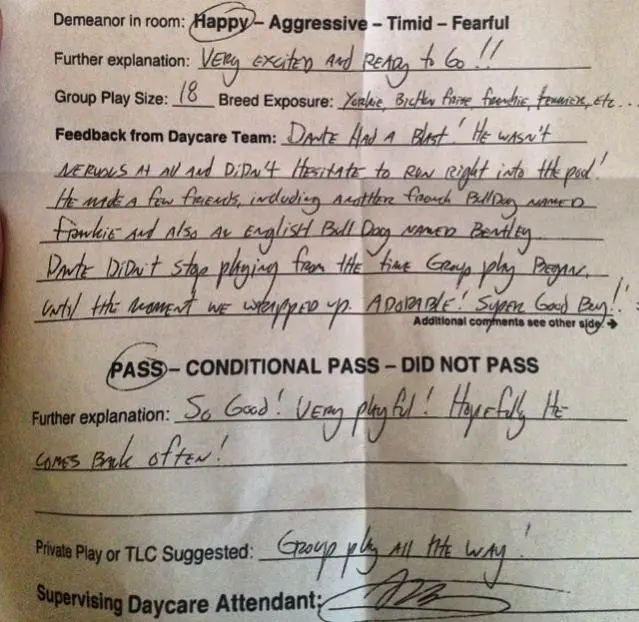 Demeanor in room: Happy – Aggressive – Timid – Fearful
Further explanation: Very excited and ready to Go!!
Group Play Size: 18 Breed Exposure: Yorkie, Bichon frise, frenchie, terrier, Etc...
Feedback from Daycare Team: Dante Had a Blast! He wasn't
nervous at all and didn't hesitate to run right into the pool!
He made a few friends, including another french Bulldog named
Frankie and also an english Bull Dog named Bentley
Dante Didn't stop playing from the time Group play Began,
until the moment we wrapped up. Adorable! Super Good Boy!!
Additional comments see other side →
PASS – CONDITIONAL PASS – DID NOT PASS
Further explanation: So Good! Very playful! Hopefully He
comes Back often!
Private Play or TLC Suggested: Group play all the way!
Supervising Daycare Attendant: